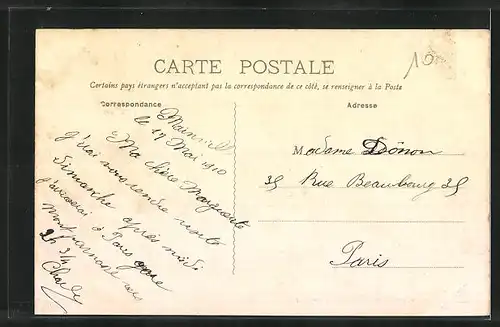 10
CARTE POSTALE
Certains pays étrangers n'acceptant pas la correspondance de ce côté, se renseigner à la Poste
Correspondance
Adresse
le 17 Mai 1910
Ma chère Marguerite
J'irai vous rendre visite
Dimanche après midi
j'arriverai à Paris gare
Montparnasse vers
2h 3/4
Madame Dônon
25 Rue Beaubourg 25
Paris